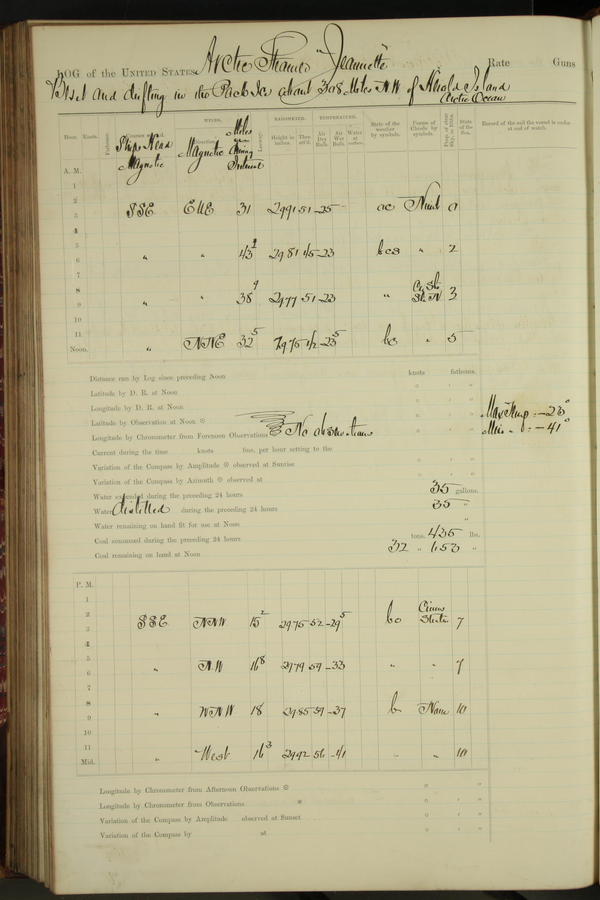 LOG of the UNITED STATES Arctic Steamer "Jeannette" Rate Guns
Beset and drifting in the Pack Ice about 308 Miles NW of Herald Island
Arctic Ocean
WINDS. BAROMETER. TEMPERATURE.
Hour. Knots. Fathoms. Ships Head Magnetic Direction Magnetic Miles Leeway. Height in inches. Ther. att'd. Air Dry Bulb. Air Wet Bulb. Water at surface. State of the weather by symbols. Forms of Clouds by symbols. State of the Sea. Record of the sail the vessel is under at end of watch.
A. M.
1
2
3 SSE ENE 31 2991 51 -25 Nimb 0
4
5
6 " " 2981 45 -23 bcs " 2
7
8
9 " " 38 2977 51 -23 " 3
10
11
Noon. " NNE 32 5 2975 bc " 5
Distance run by Log since preceding Noon knots fathoms.
Latitude by D. R. at Noon ° ' "
Longitude by D. R. at Noon ° ' " Max Temp. -23°
Latitude by Observation at Noon ° ' " Min " -41°
Longitude by Chronometer from Forenoon Observations No observations ° ' "
Current during the time knots fms. per hour setting to the
Variation of the Compass by Amplitude observed at Sunrise ° ' "
Variation of the Compass by Azimuth observed at ° ' "
Water expended during the preceding 24 hours 35 gallons.
Water distilled during the preceding 24 hours 35 "
Water remaining on hand fit for use at Noon "
Coal consumed during the preceding 24 hours tons. 435 lbs.
Coal remaining on hand at Noon 32 " 153 "
P. M.
1
2
3 SSE NNW 15 2 2975 52 -29 5 bc Cirrus Strata 7
4
5
6 " N.W 16 8 2979 59 -33 " " 7
7
8
9 " WNW 18 2985 59 -37 b None 10
10
11
Mid. " West 16 3 2992 56 -41 " " 10
Longitude by Chronometer from Afternoon Observations ° "
Longitude by Chronometer from Observations ° ' "
Variation of the Compass by Amplitude observed at Sunset ° ' "
Variation of the Compass by at ° ' "